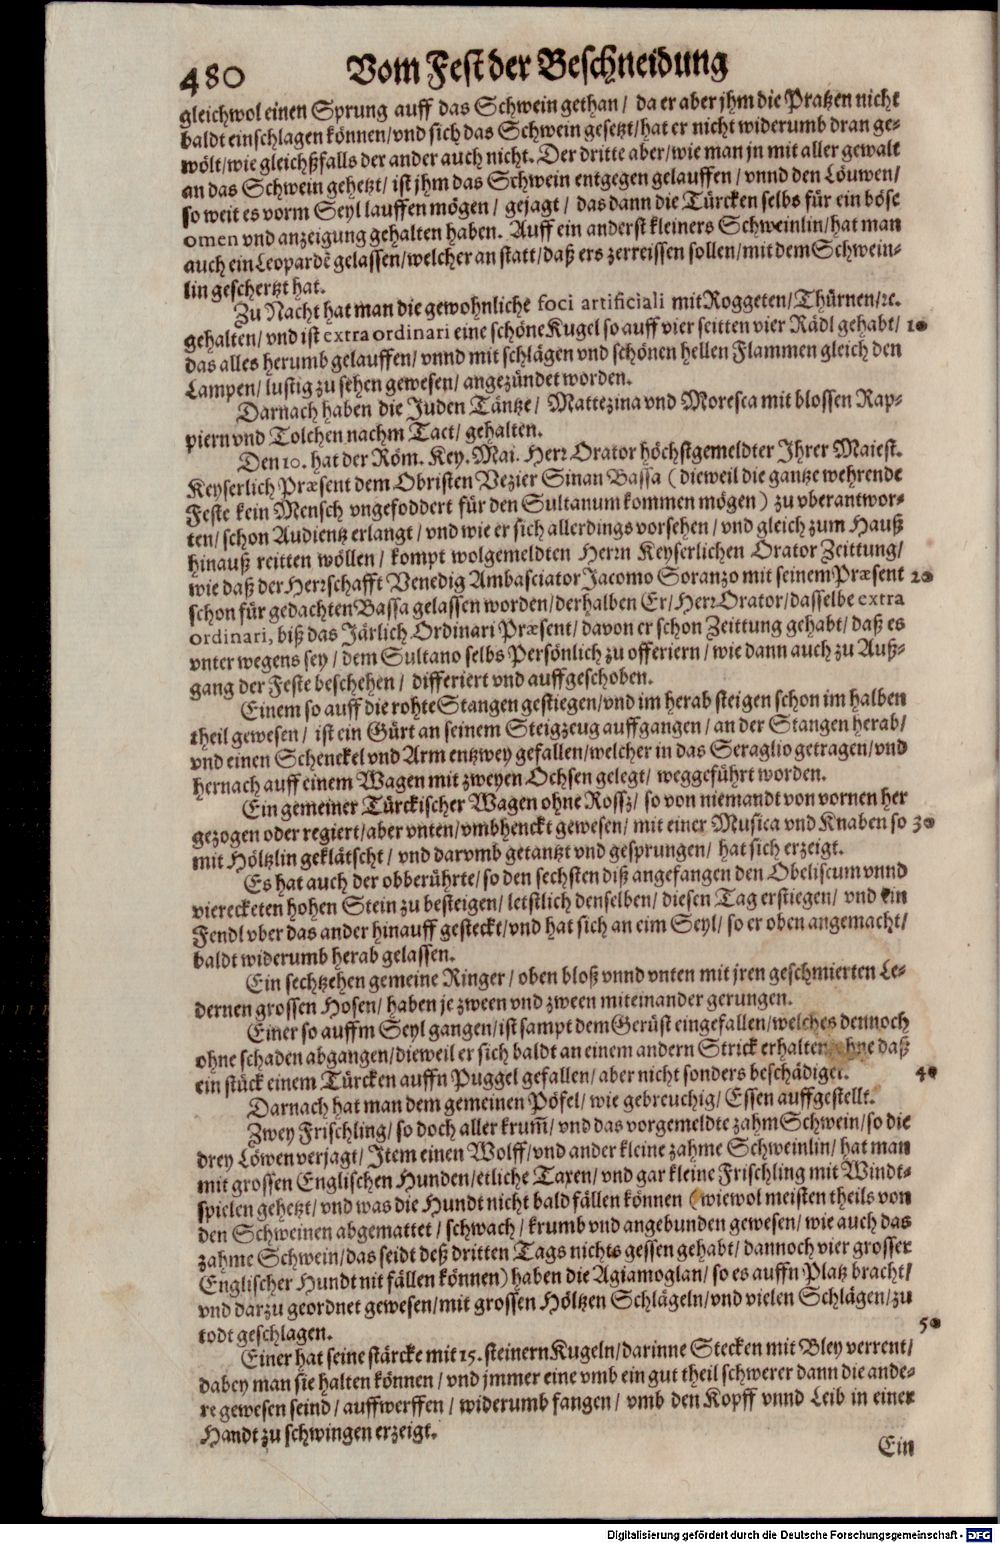 480 Vom Fest der Beschneidung
gleichwol einen Sprung auff das Schwein gethan / da er aber jhm die Pratzen nicht
baldt einschlagen können/vnd sich das Schwein gesetzt/hat er nicht widerumb dran ge-
wölt/wie gleichßfalls der ander auch nicht. Der dritte aber/wie man jn mit aller gewalt
an das Schwein gehetzt/ ist jhm das Schwein entgegen gelauffen / vnnd den Löuwen/
so weit es vorm Seyl lauffen mögen / gejagt / das dann die Türcken selbs für ein böse
omen vnd anzeigung gehalten haben. Auff ein anderst kleiners Schweinlin/hat man
auch ein Leopardē gelassen/welcher an statt/daß ers zerreissen sollen/mit dem Schwein-
lin geschertzt hat.
Zu Nacht hat man die gewohnliche foci artificiali mit Roggeten/Thürnen/ꝛc.
gehalten/ vnd ist extra ordinari eine schöne Kugel so auff vier seitten vier Rädl gehabt/ 10
das alles herumb gelauffen/ vnnd mit schlägen vnd schönen hellen Flammen gleich den
Lampen/ lustig zu sehen gewesen/ angezündet worden.
Darnach haben die Juden Täntze/ Mattezina vnd Moresca mit blossen Rap-
piern vnd Tolchen nachm Tact/ gehalten.
Den 10. hat der Röm. Key. Mai. Herr Orator höchstgemeldter Ihrer Maiest.
Keyserlich Præsent dem Obristen Vezier Sinan Bassa (dieweil die gantze wehrende
Feste kein Mensch vngefoddert für den Sultanum kommen mögen) zu vberantwor-
ten/ schon Audientz erlangt / vnd wie er sich allerdings vorsehen / vnd gleich zum Hauß
hinauß reitten wöllen / kompt wolgemeldten Herrn Keyserlichen Orator Zeittung/
wie daß der Herrschafft Venedig Ambasciator Jacomo Soranzo mit seinem Præsent 20
schon für gedachten Bassa gelassen worden/derhalben Er/Herr Orator/dasselbe extra
ordinari, biß das Järlich Ordinari Præsent/ davon er schon Zeittung gehabt/ daß es
vnter wegens sey / dem Sultano selbs Persönlich zu offeriern / wie dann auch zu Auß-
gang der Feste beschehen / differiert vnd auffgeschoben.
Einem so auff die rohte Stangen gestiegen/vnd im herab steigen schon im halben
theil gewesen / ist ein Gürt an seinem Steigzeug auffgangen / an der Stangen herab/
vnd einen Schenckel vnd Arm entzwey gefallen/welcher in das Seraglio getragen/vnd
hernach auff einem Wagen mit zweyen Ochsen gelegt/ weggeführt worden.
Ein gemeiner Türckischer Wagen ohne Rossz/ so von niemandt von vornen her
gezogen oder regiert/aber vnten/vmbhenckt gewesen/ mit einer Musica vnd Knaben so 30
mit Höltzlin geklätscht / vnd darvmb getantzt vnd gesprungen/ hat sich erzeigt.
Es hat auch der obberührte/so den sechsten diß angefangen den Obeliscum vnnd
vierecketen hohen Stein zu besteigen/ letstlich denselben/ diesen Tag erstiegen/ vnd ein
Fendl vber das ander hinauff gesteckt/vnd hat sich an eim Seyl/ so er oben angemacht/
baldt widerumb herab gelassen.
Ein sechtzehen gemeine Ringer / oben bloß vnnd vnten mit jren geschmierten Le-
dernen grossen Hosen/ haben je zween vnd zween miteinander gerungen.
Einer so auffm Seyl gangen/ist sampt dem Gerüst eingefallen/welches dennoch
ohne schaden abgangen/dieweil er sich baldt an einem andern Strick erhalten ohne daß
ein stück einem Türcken auffn Puggel gefallen/ aber nicht sonders beschädiget. 40
Darnach hat man dem gemeinen Pöfel/ wie gebreuchig/ Essen auffgestellt.
Zwey Frischling/ so doch aller krum̃/ vnd das vorgemeldte zahm Schwein/so die
drey Löwen verjagt/ Item einen Wolff/vnd ander kleine zahme Schweinlin/ hat man
mit grossen Englischen Hunden/etliche Taxen/ vnd gar kleine Frischling mit Windt-
spielen gehetzt/ vnd was die Hundt nicht bald fällen können (wiewol meisten theils von
den Schweinen abgemattet / schwach / krumb vnd angebunden gewesen/ wie auch das
zahme Schwein/das seidt deß dritten Tags nichts gessen gehabt/ dannoch vier grosser
Englischer Hundt nit fällen können) haben die Agiamoglan/ so es auffn Platz bracht/
vnd darzu geordnet gewesen/mit grossen Höltzen Schlägeln/vnd vielen Schlägen/zu
todt geschlagen. 50
Einer hat seine stärcke mit 15. steinern Kugeln/darinne Stecken mit Bley verrent/
dabey man sie halten können / vnd jmmer eine vmb ein gut theil schwerer dann die ande-
re gewesen seind / auffwerffen / widerumb fangen / vmb den Kopff vnnd Leib in einer
Handt zu schwingen erzeigt.
Ein
Digitalisierung gefördert durch die Deutsche Forschungsgemeinschaft - DFG